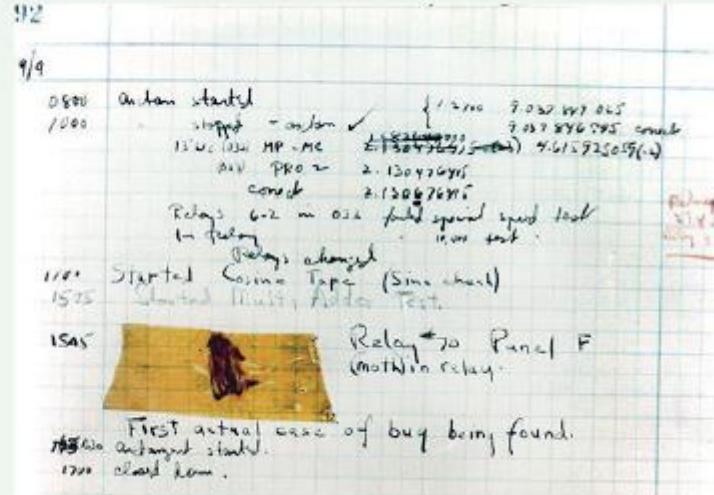 92
9/9
0800 antan started
1000 " stopped - antan ✓ { 1.2700 9.037 847 025
9.037 846 995 correct
13" uc (032) MP - MC 4.615925059(-2)
(033) PRO 2 2.130476415
correct 2.130676415
Relays 6-2 in 033 failed special speed test
in relay 10,000 test.
Relays changed
1100 Started Cosine Tape (Sine check)
1525 Started Mult+ Adder Test.
1545 Relay #70 Panel F
(moth) in relay.
First actual case of bug being found.
1630 antangent started.
1700 closed down.